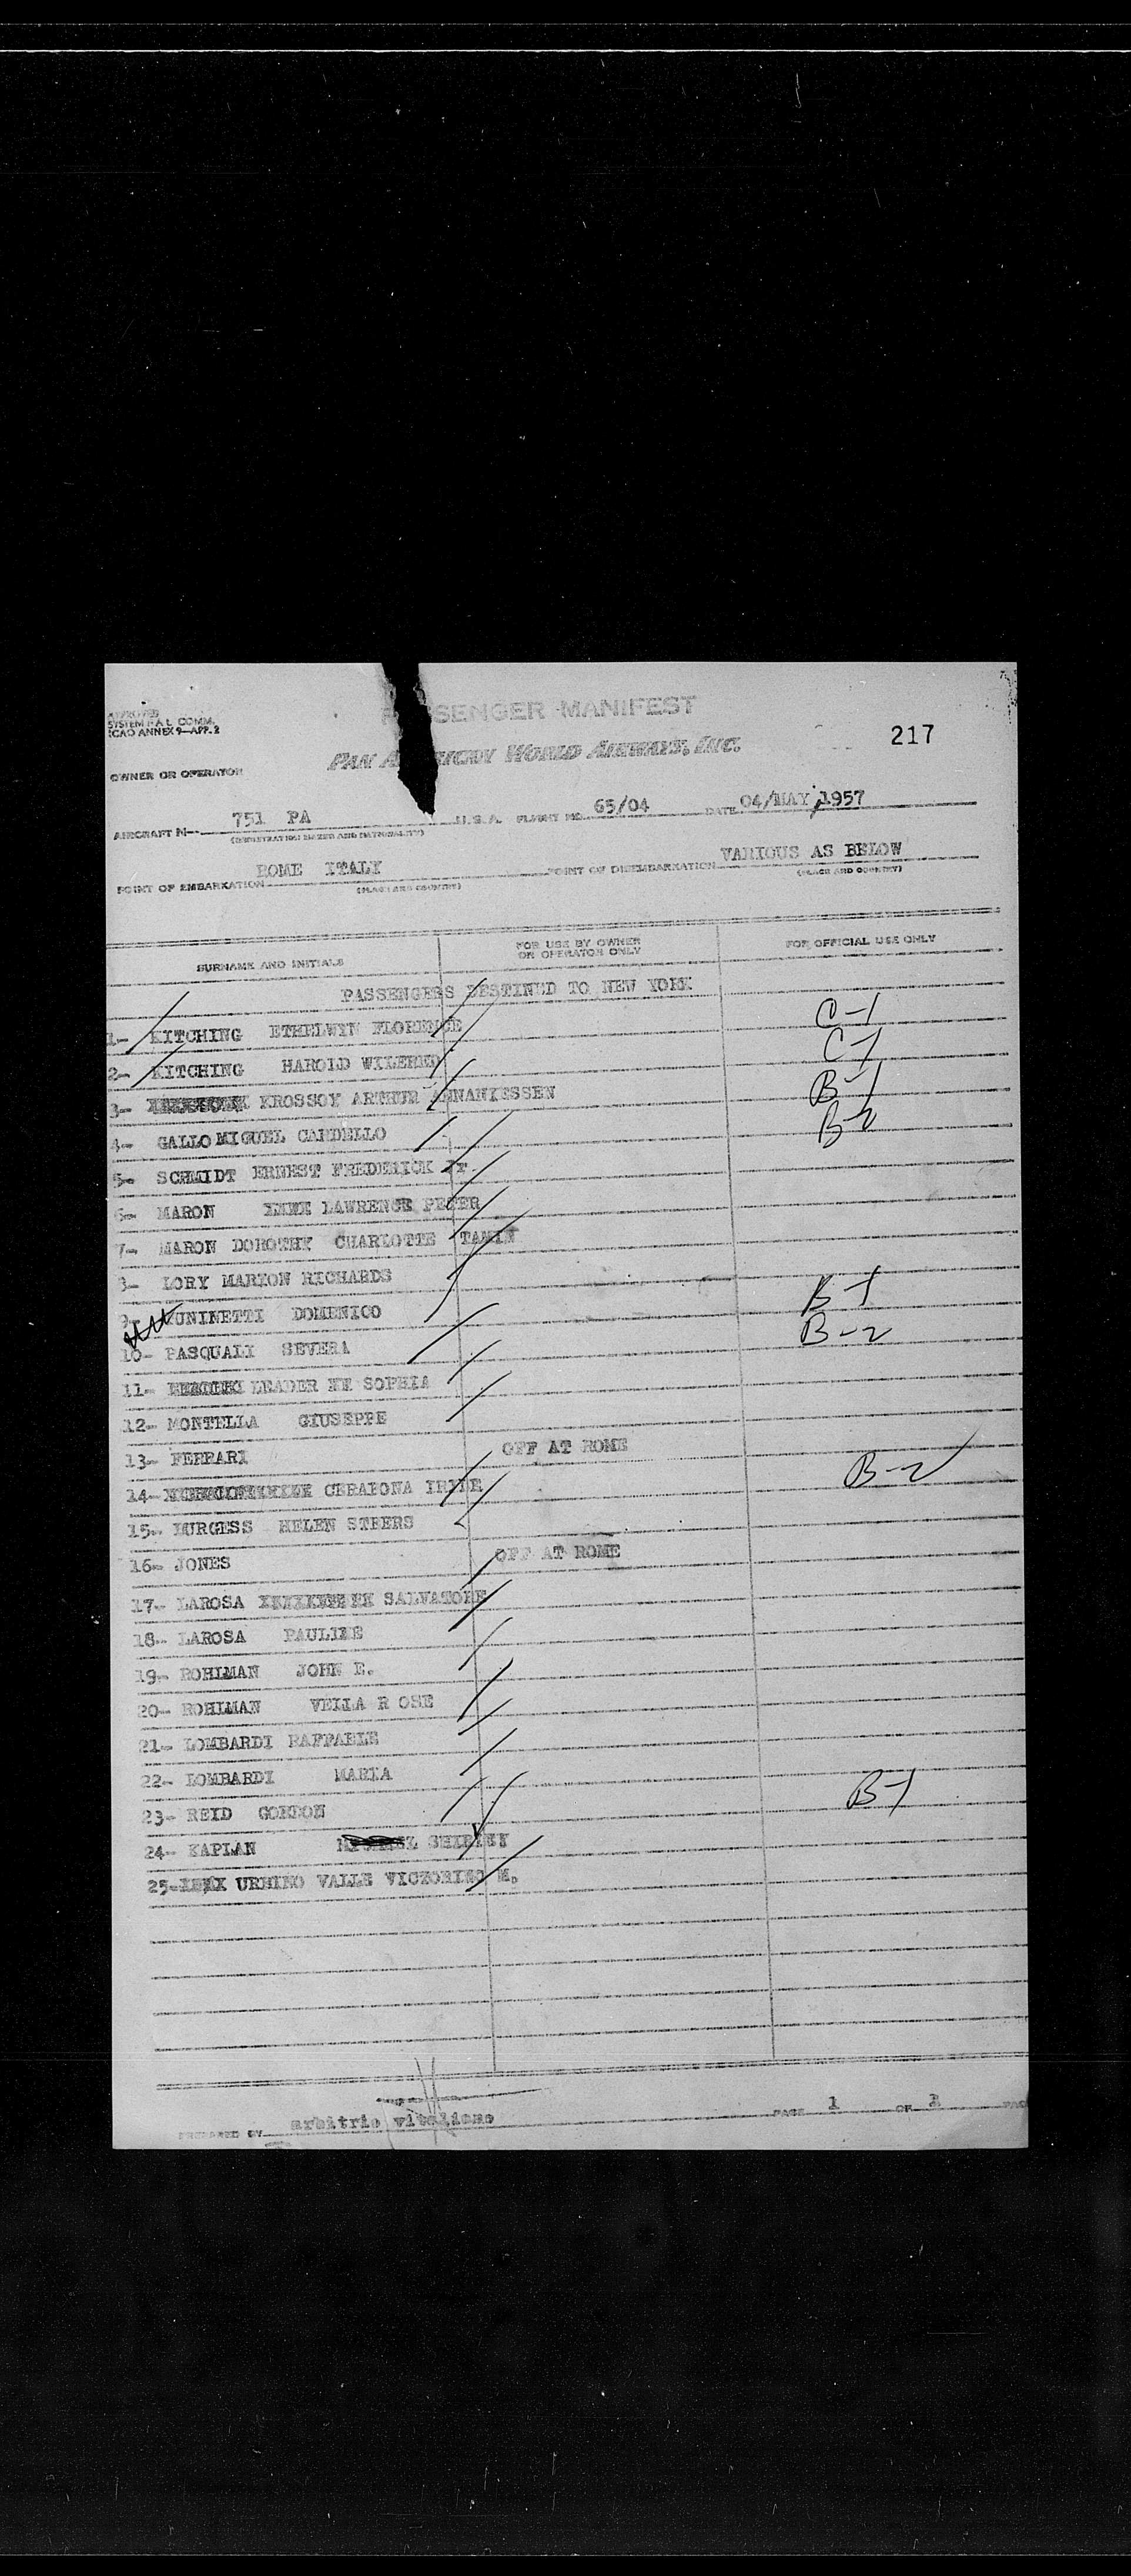 APPROVED
SYSTEM F.A.L. COMM.
ICAO ANNEX 9—APP. 2
SENGER MANIFEST
217
PAN A RICAN WORLD AIRWAYS, INC.
OWNER OR OPERATOR
AIRCRAFT N-- 751 PA U.S.A. FLIGHT NO. 65/04 DATE 04/MAY 1957
(REGISTRATION MARKS AND NATIONALITY)
POINT OF EMBARKATION ROME ITALY POINT OF DISEMBARKATION VARIOUS AS BELOW
(PLACE AND COUNTRY) (PLACE AND COUNTRY)
SURNAME AND INITIALS FOR USE BY OWNER OR OPERATOR ONLY FOR OFFICIAL USE ONLY
PASSENGERS DESTINED TO NEW YORK
1- KITCHING ETHELWYN FLORENCE C-1
2- KITCHING HAROLD WILFRED C-1
3- KROSSOY ARTHUR ANNANIESSEN B-1
4- GALLO MIGUEL CARDELLO B-2
5- SCHMIDT ERNEST FREDERICK Jr
6- MARON LAWRENCE PETER
7- MARON DOROTHY CHARLOTTE TAMIN
8- LORY MARION RICHARDS
9- UNINETTI DOMENICO B-1
10- PASQUALI SEVERA B-2
11- LEADER SOPHIA
12- MONTELLA GIUSEPPE
13- FERRARI OFF AT ROME
14- CERABONA IRIDE B-2
15- BURGESS HELEN STEERS
16- JONES OFF AT ROME
17- LAROSA SALVATORE
18- LAROSA PAULINE
19- ROHLMAN JOHN E.
20- ROHLMAN VELLA R OSE
21- LOMBARDI RAFFAELE
22- LOMBARDI MARIA
23- REID GORDON B-1
24- KAPLAN SHIRLEY
25- URBINO VALLE VICTORINO M.
PREPARED BY arbitrio vitaliano PAGE 1 OF 1 PAG